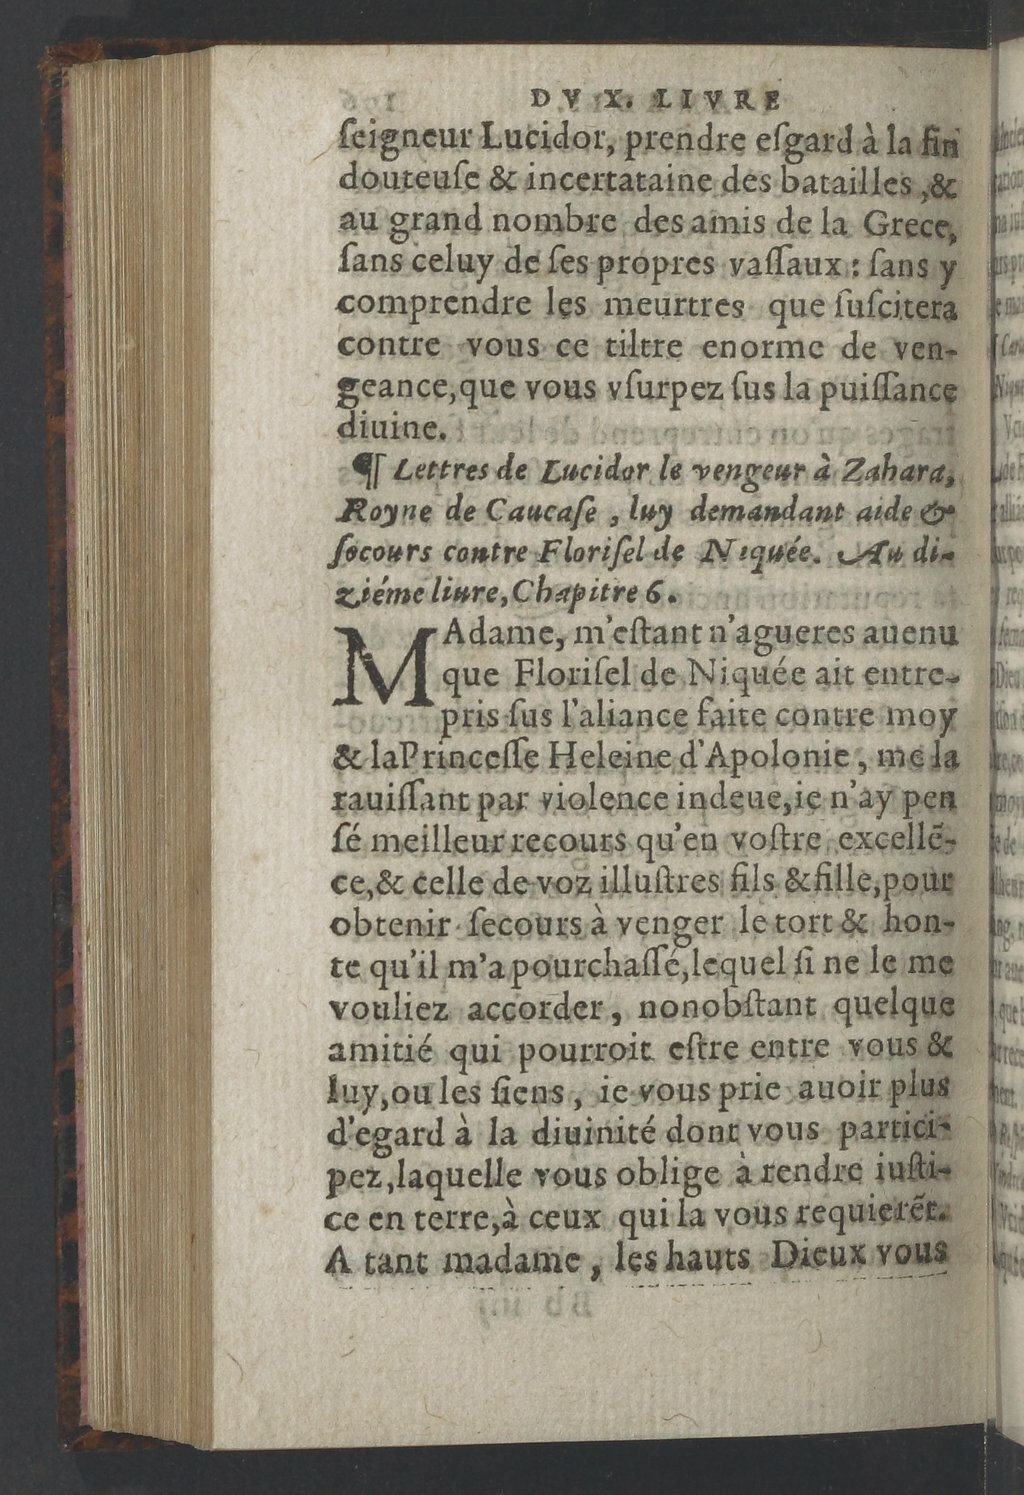 DV X. LIVRE
ſeigneur Lucidor, prendre eſgard à la fin
douteuſe & incertataine des batailles ,&
au grand nombre des amis de la Grece,
ſans celuy de ſes propres vaſſaux : ſans y
comprendre les meurtres que ſuſcitera
contre vous ce tiltre enorme de ven-
geance, que vous vſurpez ſus la puiſſance
diuine.
¶ Lettres de Lucidor le vengeur à Zahara,
Royne de Caucaſe , luy demandant aide &
ſecours contre Floriſel de Niquée. Au di-
ziéme liure, Chapitre 6.
MAdame, m'eſtant n'agueres auenu
que Floriſel de Niquée ait entre-
pris ſus l'aliance faite contre moy
& la Princeſſe Heleine d'Apolonie , me la
rauiſſant par violence indeue, ie n'ay pen
ſé meilleur recours qu'en voſtre excellẽ-
ce, & celle de voz illuſtres fils & fille, pour
obtenir ſecours à venger le tort & hon-
te qu'il m'a pourchaſſé, lequel ſi ne le me
vouliez accorder , nonobſtant quelque
amitié qui pourroit eſtre entre vous &
luy, ou les ſiens , ie vous prie auoir plus
d'egard à la diuinité dont vous partici-
pez, laquelle vous oblige à rendre iuſti-
ce en terre, à ceux qui la vous requierẽt.
A tant madame , les hauts Dieux vous